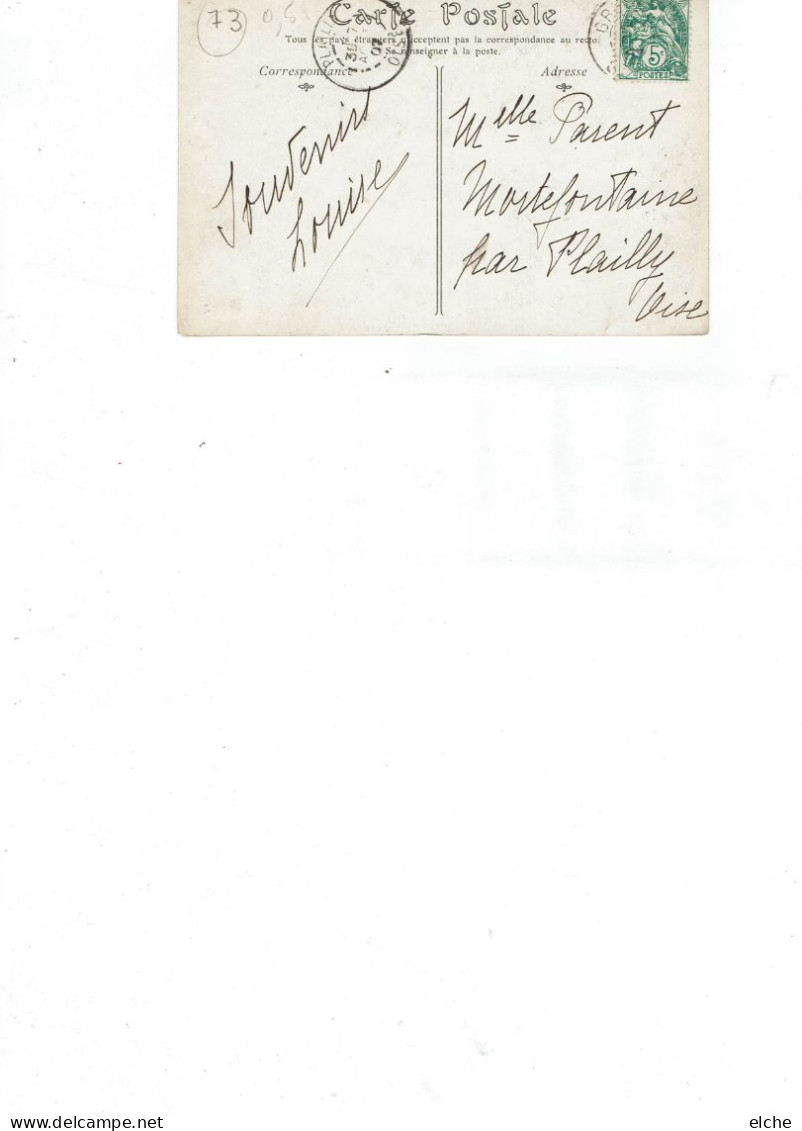 73 0,5
Carte Postale
Tous les pays étrangers n'acceptent pas la correspondance au recto.
Se renseigner à la poste.
Correspondance
Adresse
5c
POSTES
Souvenirs
Louise
Melle Parent
Mortefontaine
par Plailly
Oise
delcampe.net
elche